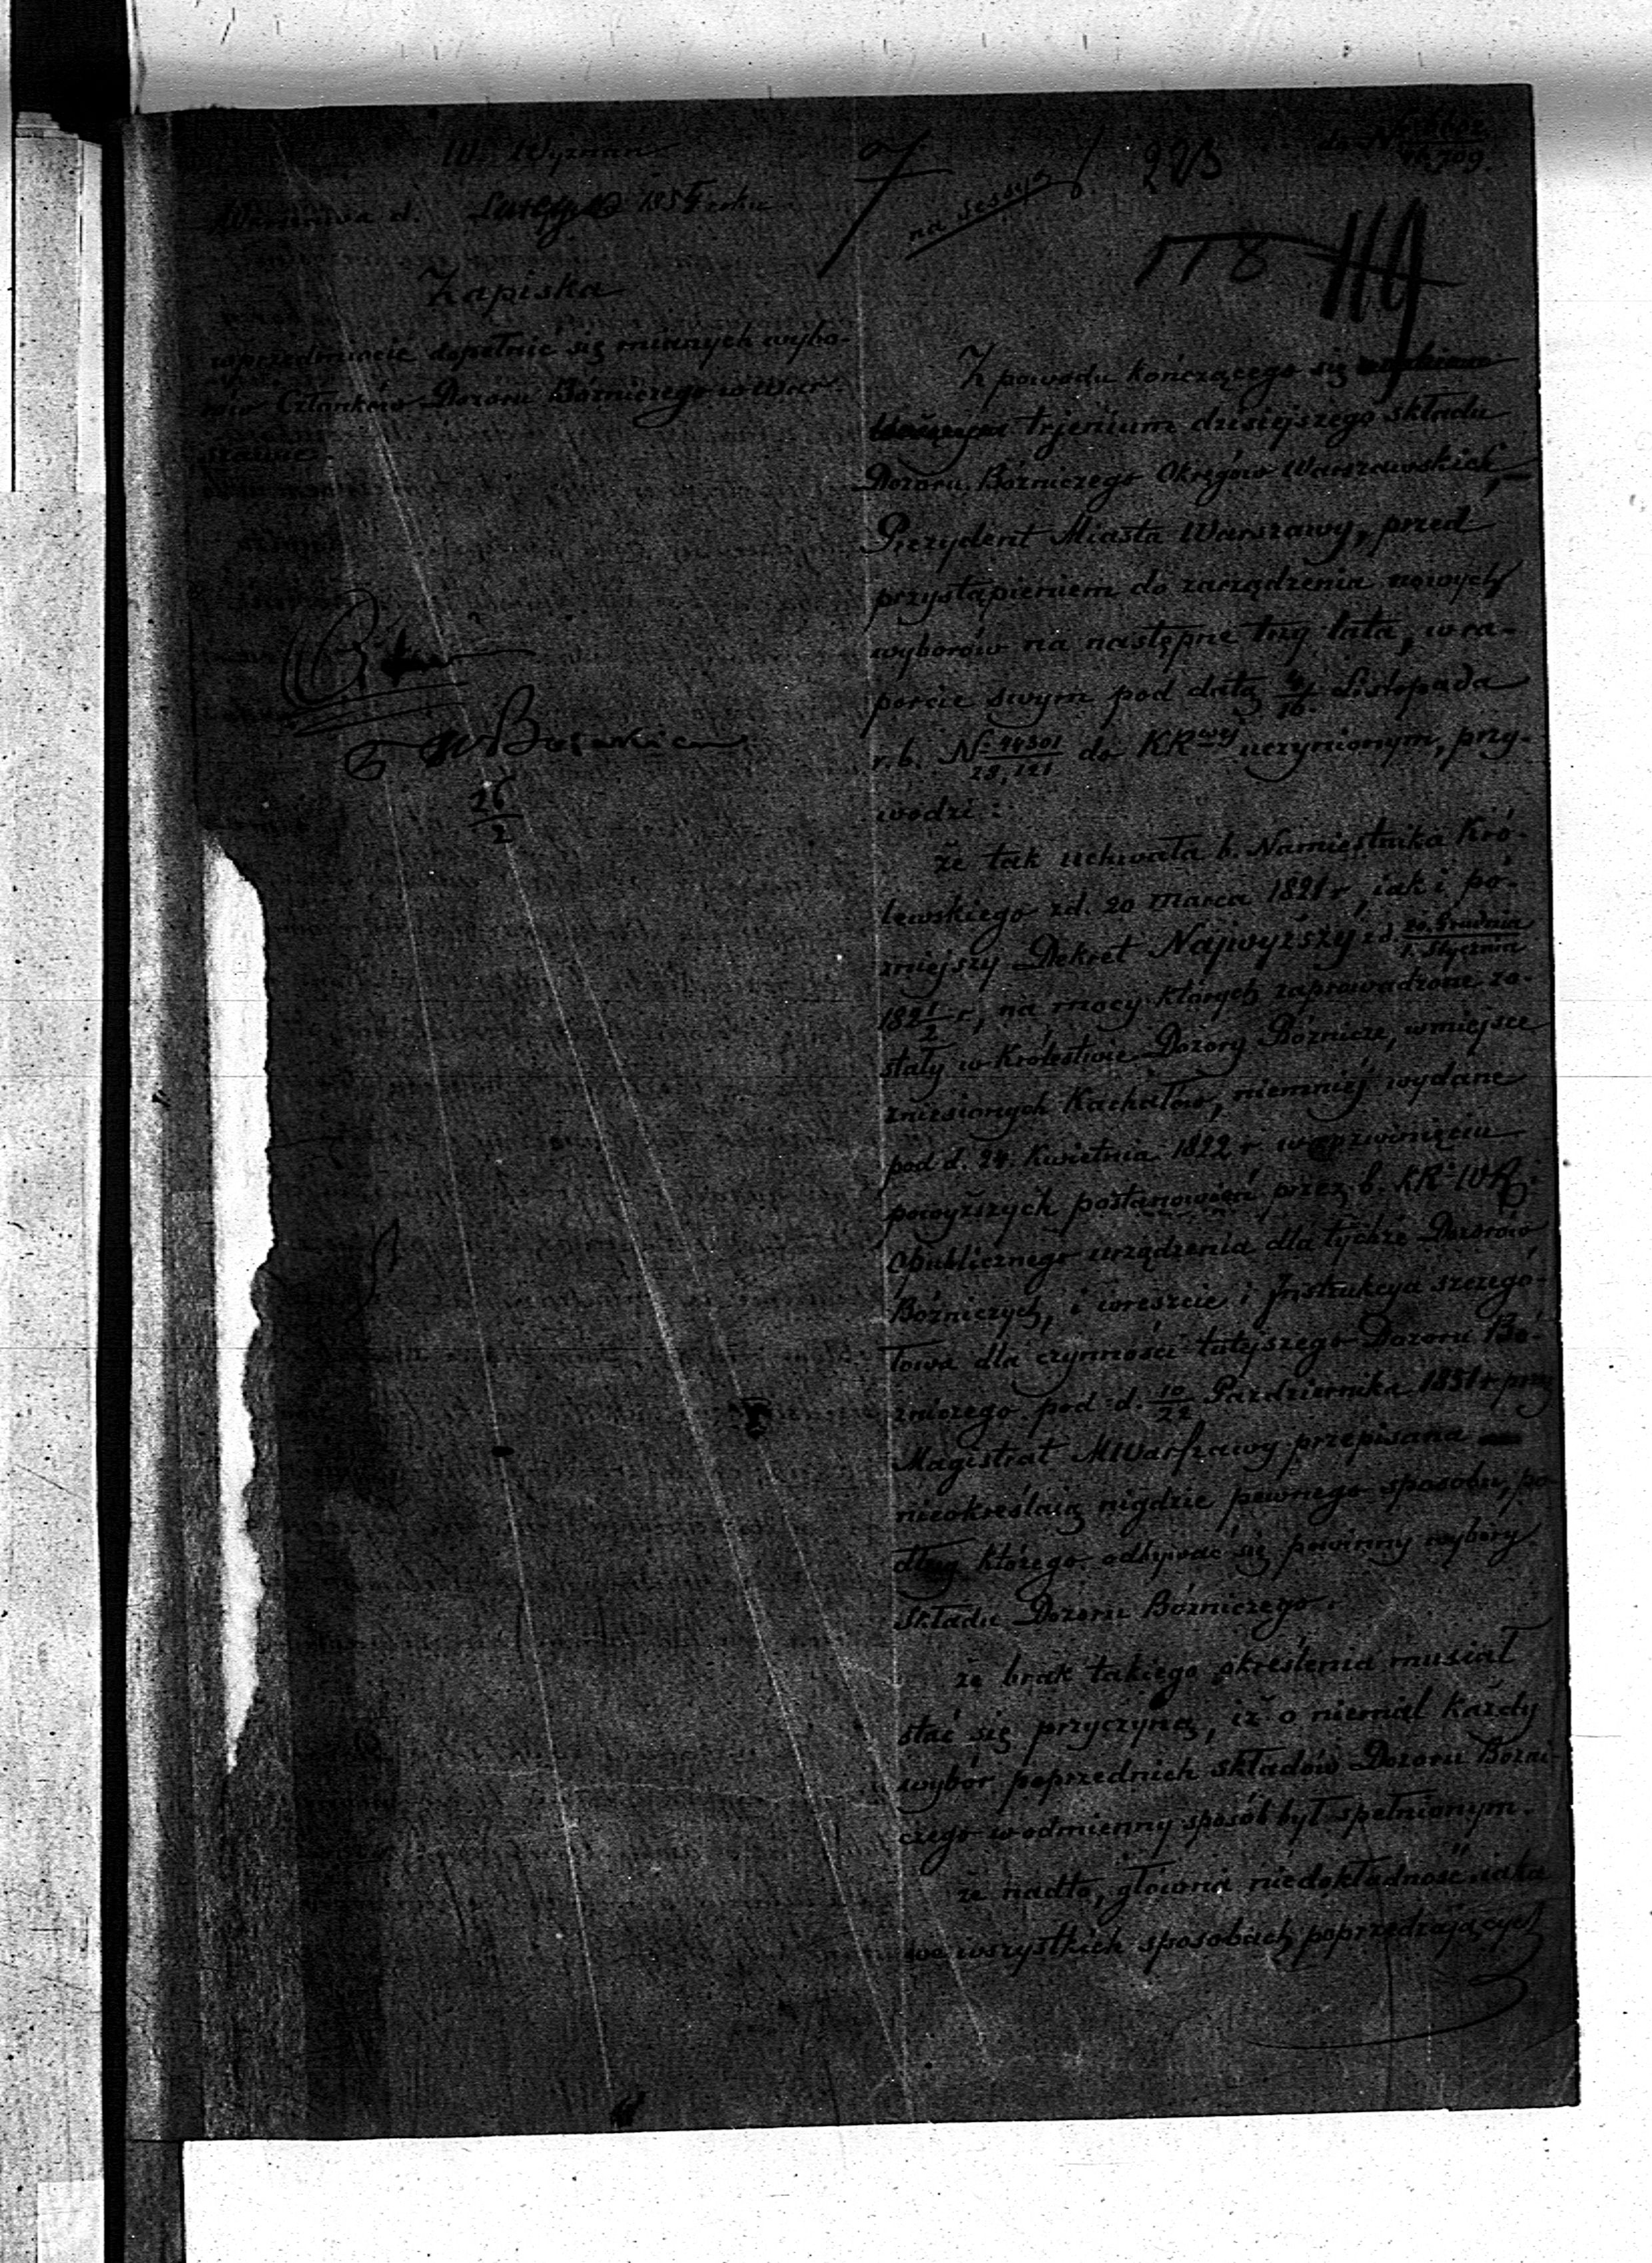 W. Wyznań
Warszawa d. Lutego 1854 roku
Zapiska
w przedmiocie dopełnić się mianych wybo-
rów Członków Dozoru Bózniczego w War-
szawie.
26
2
na sessyą
223
do N
46,709.
118 119
Z powodu kończącego się
trjenium dzisiejszego składu
Dozoru Bózniczego Okręgów Warszawskich,
Prezydent Miasta Warszawy, przed
przystąpieniem do zarządzenia nowych
wyborów na następne trzy lata, w ra-
porcie swym pod datą 4/16 Listopada
r. b. N 44301/28,121 do KRwéj uczynionym, przy-
wodzi:
że tak uchwała b. Namiestnika Kró-
lewskiego z d. 20 Marca 1821 r, iak i pó-
zniejszy Dekret Najwyższy z d. 20. Grudnia/1. Stycznia
1821/2 r, na mocy których zaprowadzone zo-
stały w Królestwie Dozory Bóznicze, w miejsce
zniesionych Kachałów, niemniéj wydane
pod d. 24. Kwietnia 1822 r. w rozwinięciu
powyższych postanowień przez b. KR. WR i
Opublicznego urządzenia dla tychże Dozorów
Bózniczych, i wreszcie i Instrukcya szczegó-
łowa dla czynności tutejszego Dozoru Bó-
zniczego pod d. 10/22 Października 1851 r przez
Magistrat MWarszawy przepisana
nieokreślaią nigdzie pewnego sposobu, po-
dług którego odbywać się powinny wybory
Składu Dozoru Bózniczego.
że brak takiego określenia musiał
stać się przyczyną, iż o niemal każdy
wybór poprzednich składów Dozoru Bózni-
czego w odmienny sposób był spełnionym.
że nadto, główna niedokładność iaka
we wszystkich sposobach poprzedzających